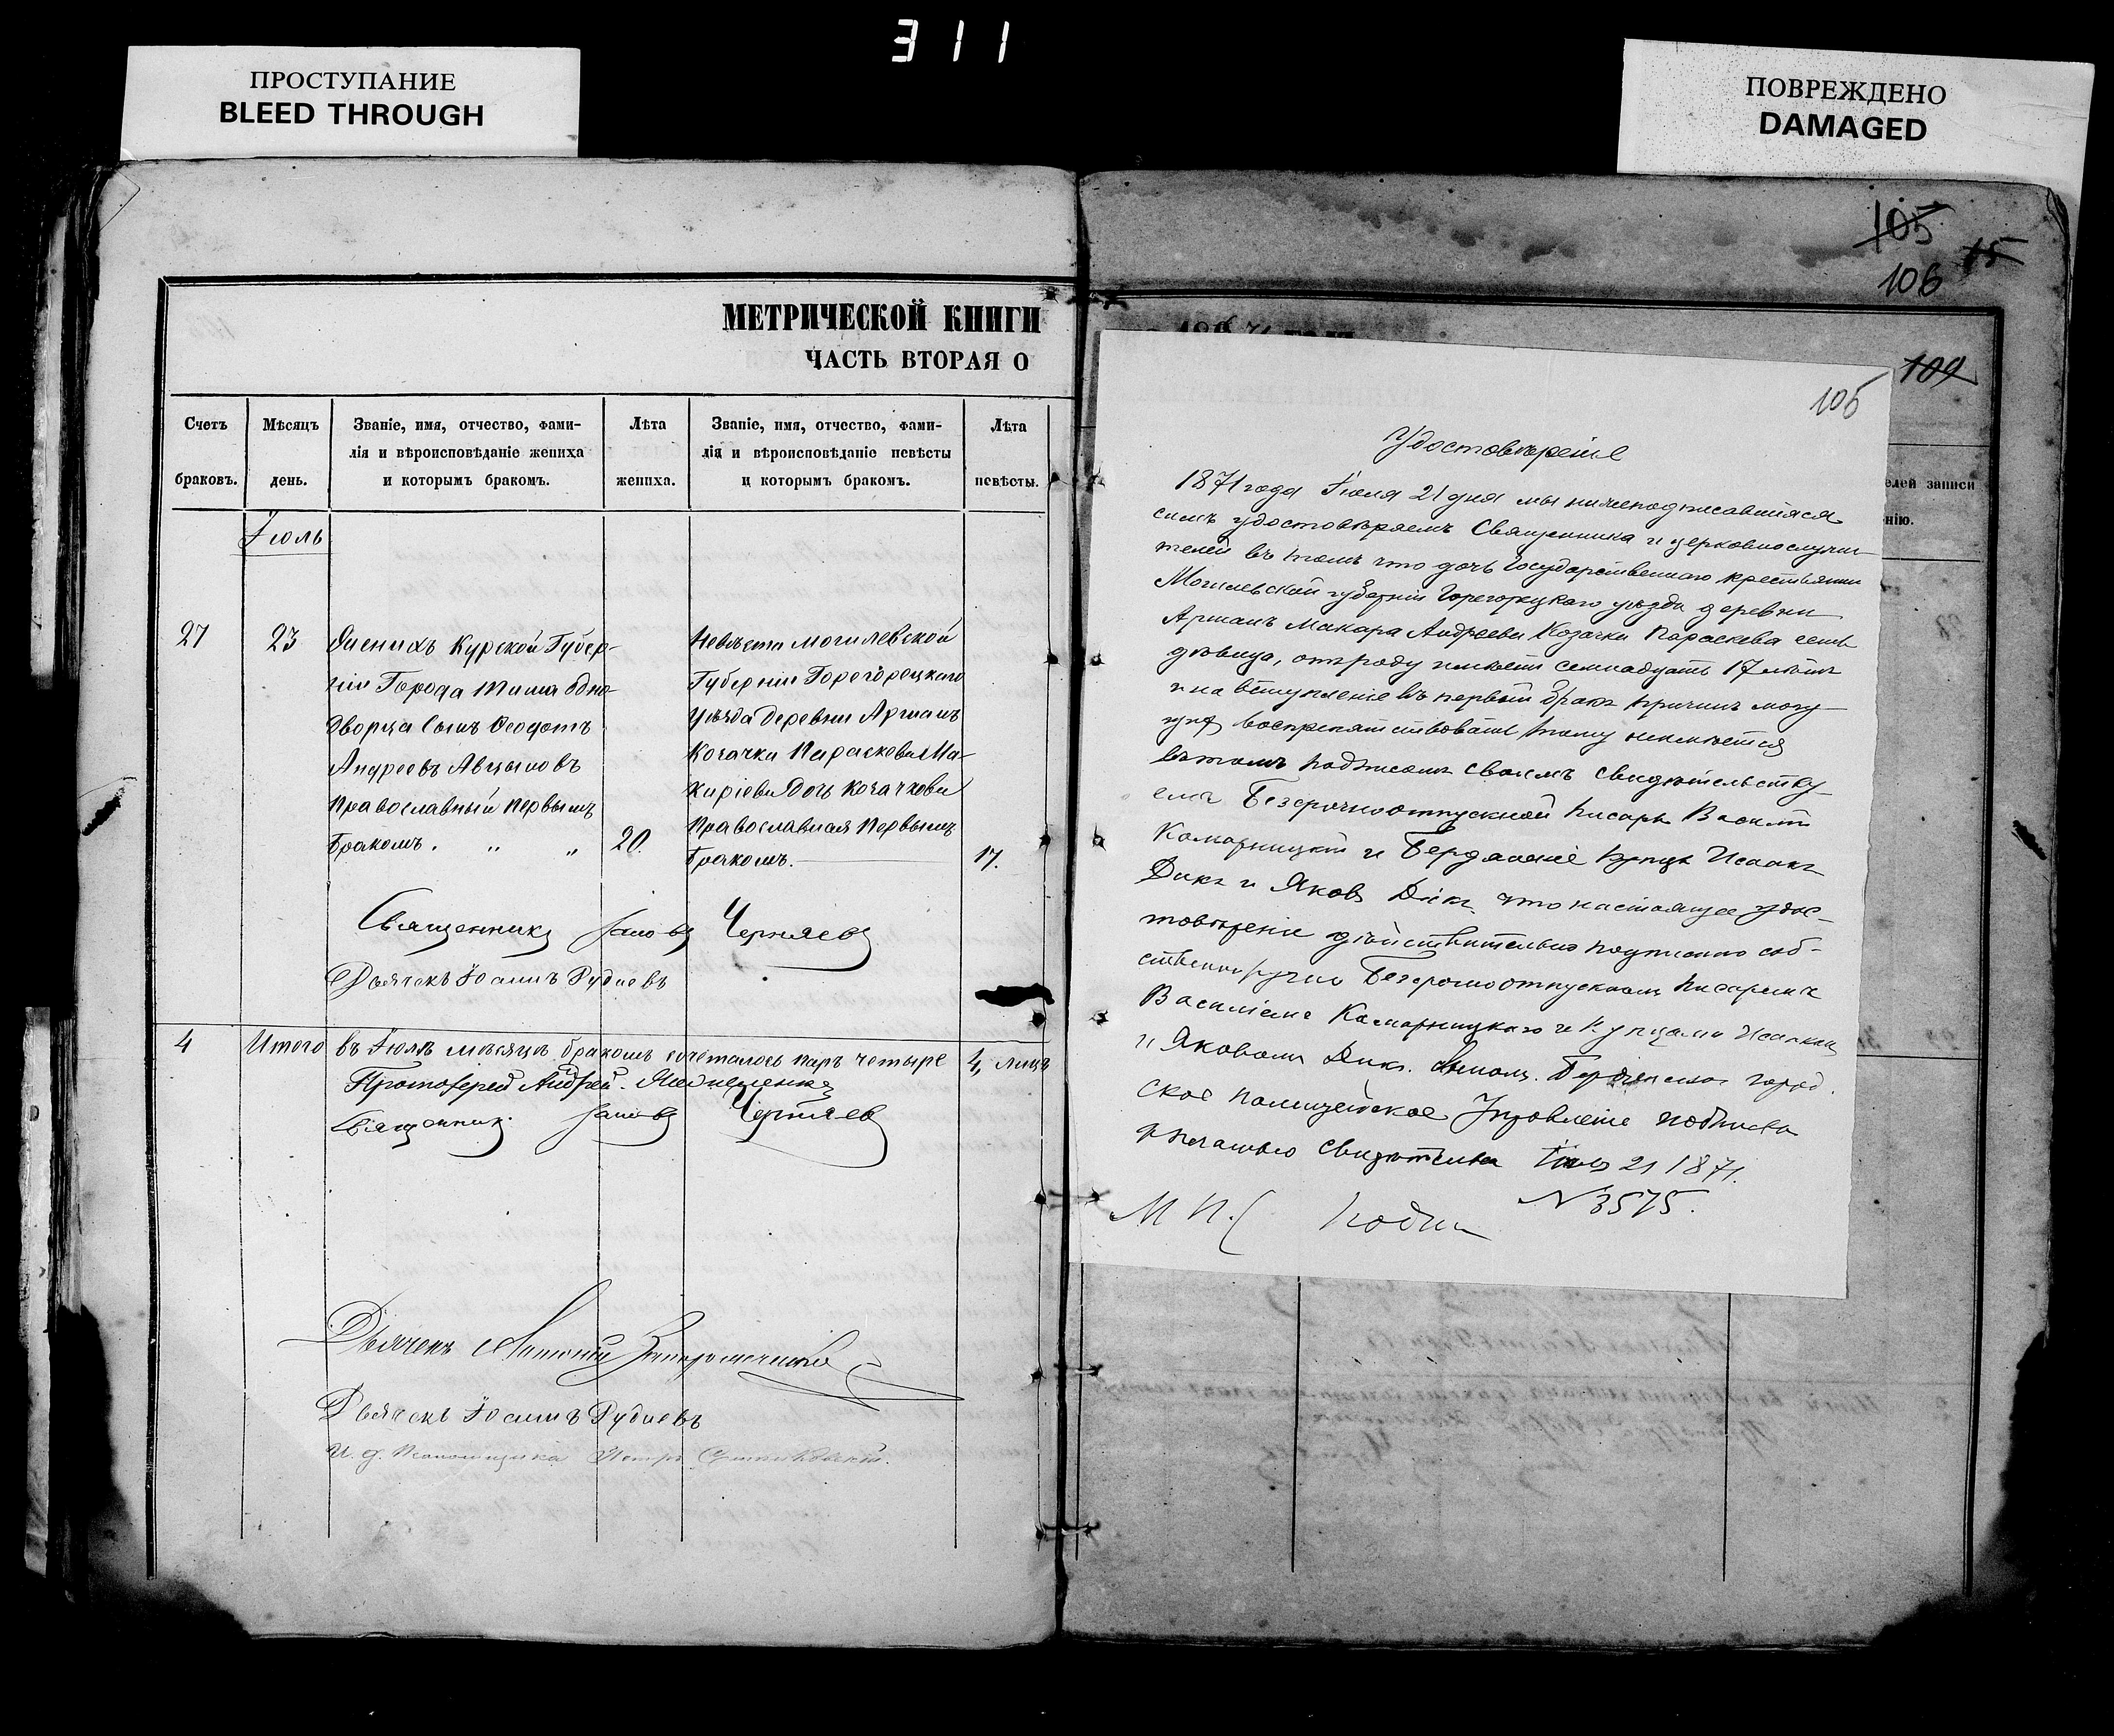 311
ПРОСТУПАНИЕ
BLEED THROUGH
ПОВРЕЖДЕНО
DAMAGED
МЕТРИЧЕСКОЙ КНИГИ
ЧАСТЬ ВТОРАЯ О
Счетъ браковъ.
Мѣсяцъ день.
Званіе, имя, отчество, фами-
лія и вѣроисповѣданіе жениха
и которымъ бракомъ.
Лѣта жениха.
Званіе, имя, отчество, фами-
лія и вѣроисповѣданіе невѣсты
и которымъ бракомъ.
Лѣта невѣсты.
Іюль
27
23
Женихъ Курской Губер-
ніи Города Тима одно-
дворца Сынъ Феодотъ
Андреевъ
Православный первымъ
бракомъ. „ „
20.
Невѣста Могилевской
Губерніи Горегорецкаго
уѣзда Деревни
Козачки Параскева Ма-
каріева Дочь Козачкова
Православная Первымъ
бракомъ.
17.
Священникъ Іаковъ Черняевъ
Дьячекъ Іоаннъ Рудневъ
4
Итого въ Іюлѣ мѣсяцѣ бракомъ сочеталось паръ четыре 4, лицъ
Протоіерей Андрей
Священник. Іаковъ Черняев
Дьячекъ
Дьячекъ Іоаннъ Рудневъ
И. д. Псаломщика Петръ
105
106
15
109
елей записи
нію.
106
Удостовѣреніе
1871 года Іюля 21 дня мы нижеподписавшіяся
симъ удостовѣряемъ Священника и церковнослужи-
телей въ томъ что дочь Государственнаго крестьянина
Могилевской губерніи Горегорецкаго уѣзда деревни
Макара Андреева Козачки Параскева есть
дѣвица, отъ роду имѣетъ семнадцать 17 лѣтъ
и на вступленіе въ первый бракъ причинъ могу-
воспрепятствовать тому неимѣется
въ томъ подписомъ своимъ свидѣтельству-
емъ Безсрочноотпускной писарь Василій
Комарницкій и Бердянскіе купцы Исаакъ
Дикъ и Яковъ Дикъ что настоящее удос-
товѣреніе дѣйствительно подписано соб-
ственноручно Безсрочноотпускнымъ писаремъ
Василіемъ Комарницкаго и Купцами Исаакомъ
и Яковомъ Дикъ. Бердянское город.
ское полицейское Управленіе подписью
и печатью Іюля 21 1871.
№ 3575.
М П.